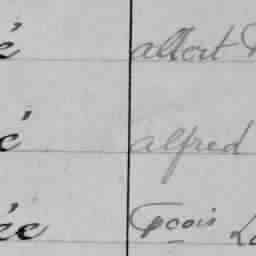 é albert
é alfred
ée fçois